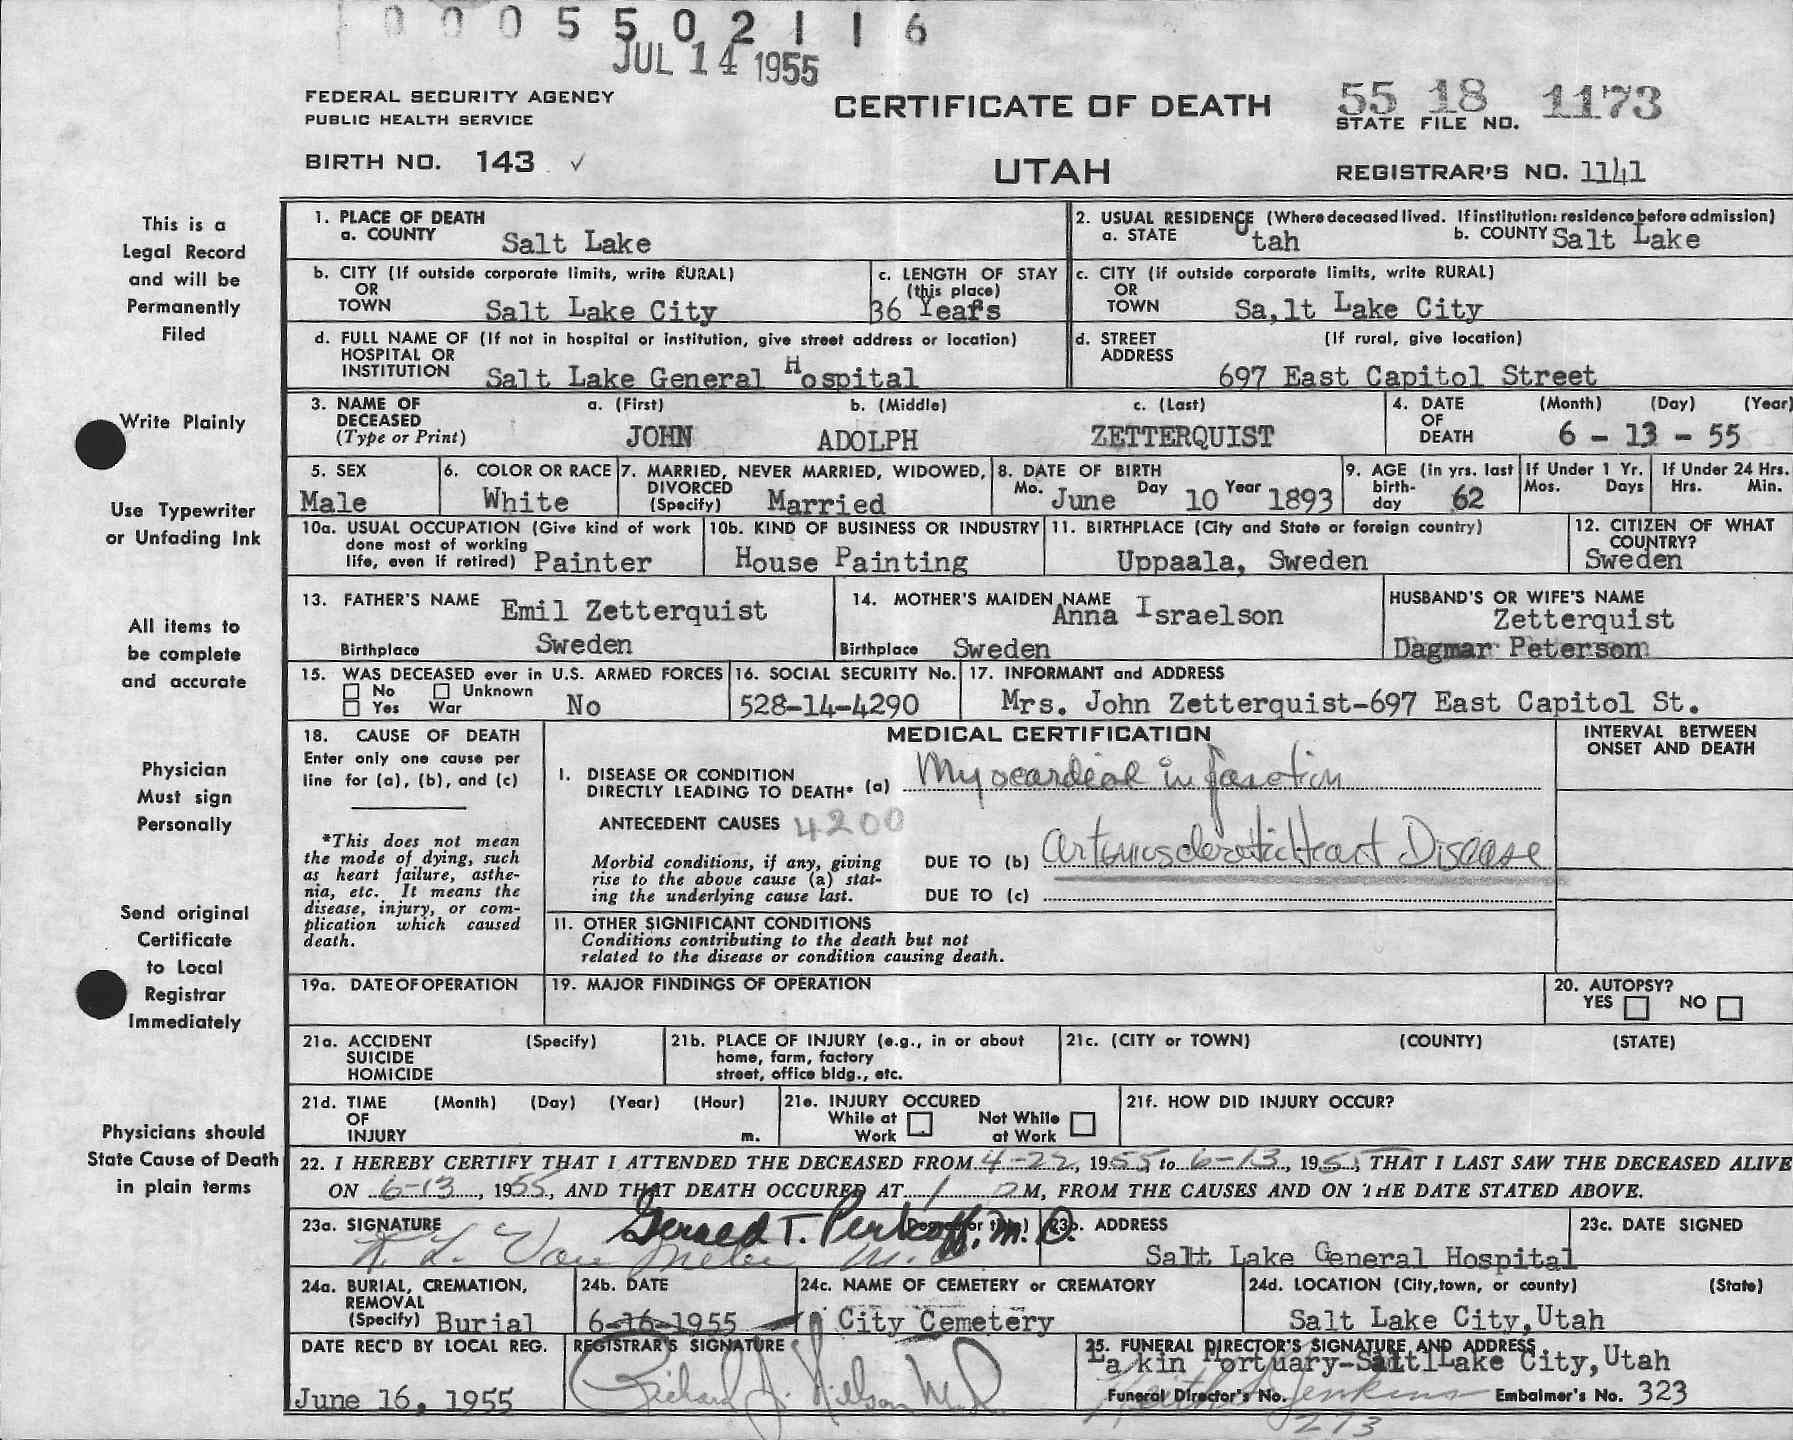 0 0 0 5 5 0 2 1 1 6
JUL 14 1955
FEDERAL SECURITY AGENCY
PUBLIC HEALTH SERVICE
CERTIFICATE OF DEATH
55 18 1173
STATE FILE NO.
BIRTH NO. 143 ✓
UTAH
REGISTRAR'S NO. 1141
This is a
Legal Record
and will be
Permanently
Filed
Write Plainly
Use Typewriter
or Unfading Ink
All items to
be complete
and accurate
Physician
Must sign
Personally
Send original
Certificate
to Local
Registrar
Immediately
Physicians should
State Cause of Death
in plain terms
1. PLACE OF DEATH
a. COUNTY Salt Lake
2. USUAL RESIDENCE (Where deceased lived. If institution: residence before admission)
a. STATE Utah b. COUNTY Salt Lake
b. CITY (If outside corporate limits, write RURAL)
OR
TOWN Salt Lake City
c. LENGTH OF STAY
(this place)
36 Years
c. CITY (if outside corporate limits, write RURAL)
OR
TOWN Sa,lt Lake City
d. FULL NAME OF (If not in hospital or institution, give street address or location)
HOSPITAL OR
INSTITUTION Salt Lake General Hospital
d. STREET (If rural, give location)
ADDRESS
697 East Capitol Street
3. NAME OF a. (First) b. (Middle) c. (Last)
DECEASED
(Type or Print) JOHN ADOLPH ZETTERQUIST
4. DATE (Month) (Day) (Year)
OF
DEATH 6 - 13 - 55
5. SEX
Male
6. COLOR OR RACE
White
7. MARRIED, NEVER MARRIED, WIDOWED,
DIVORCED
(Specify) Married
8. DATE OF BIRTH
Mo. June Day 10 Year 1893
9. AGE (in yrs. last
birth-
day 62
If Under 1 Yr.
Mos. Days
If Under 24 Hrs.
Hrs. Min.
10a. USUAL OCCUPATION (Give kind of work
done most of working
life, even if retired) Painter
10b. KIND OF BUSINESS OR INDUSTRY
House Painting
11. BIRTHPLACE (City and State or foreign country)
Uppaala, Sweden
12. CITIZEN OF WHAT
COUNTRY?
Sweden
13. FATHER'S NAME Emil Zetterquist
Birthplace Sweden
14. MOTHER'S MAIDEN NAME
Anna Israelson
Birthplace Sweden
HUSBAND'S OR WIFE'S NAME
Zetterquist
Dagmar Peterson
15. WAS DECEASED ever in U.S. ARMED FORCES
No Unknown
Yes War No
16. SOCIAL SECURITY No.
528-14-4290
17. INFORMANT and ADDRESS
Mrs. John Zetterquist-697 East Capitol St.
18. CAUSE OF DEATH
Enter only one cause per
line for (a), (b), and (c)
*This does not mean
the mode of dying, such
as heart failure, asthe-
nia, etc. It means the
disease, injury, or com-
plication which caused
death.
MEDICAL CERTIFICATION
INTERVAL BETWEEN
ONSET AND DEATH
I. DISEASE OR CONDITION
DIRECTLY LEADING TO DEATH* (a) Myocardial infarction
ANTECEDENT CAUSES 4200
Morbid conditions, if any, giving
rise to the above cause (a) stat-
ing the underlying cause last.
DUE TO (b) Arteriosclerotic Heart Disease
DUE TO (c)
II. OTHER SIGNIFICANT CONDITIONS
Conditions contributing to the death but not
related to the disease or condition causing death.
19a. DATE OF OPERATION
19. MAJOR FINDINGS OF OPERATION
20. AUTOPSY?
YES NO
21a. ACCIDENT (Specify)
SUICIDE
HOMICIDE
21b. PLACE OF INJURY (e.g., in or about
home, farm, factory
street, office bldg., etc.
21c. (CITY or TOWN) (COUNTY) (STATE)
21d. TIME (Month) (Day) (Year) (Hour)
OF
INJURY m.
21e. INJURY OCCURED
While at Not While
Work at Work
21f. HOW DID INJURY OCCUR?
22. I HEREBY CERTIFY THAT I ATTENDED THE DECEASED FROM 4-22, 1955 to 6-13, 1955, THAT I LAST SAW THE DECEASED ALIVE
ON 6-13, 1955, AND THAT DEATH OCCURED AT 1 P M, FROM THE CAUSES AND ON THE DATE STATED ABOVE.
23a. SIGNATURE (Degree or title)
Gerald T. Perkoff, M.D.
Van Meter M.D.
23b. ADDRESS
Salt Lake General Hospital
23c. DATE SIGNED
24a. BURIAL, CREMATION,
REMOVAL
(Specify) Burial
24b. DATE
6-16-1955
24c. NAME OF CEMETERY or CREMATORY
City Cemetery
24d. LOCATION (City, town, or county) (State)
Salt Lake City,Utah
DATE REC'D BY LOCAL REG.
June 16, 1955
REGISTRAR'S SIGNATURE
Richard J. Nilson M.D.
25. FUNERAL DIRECTOR'S SIGNATURE AND ADDRESS
Larkin Mortuary-Salt Lake City,Utah
Funeral Director's No. Keith Jenkins Embalmer's No. 323
273